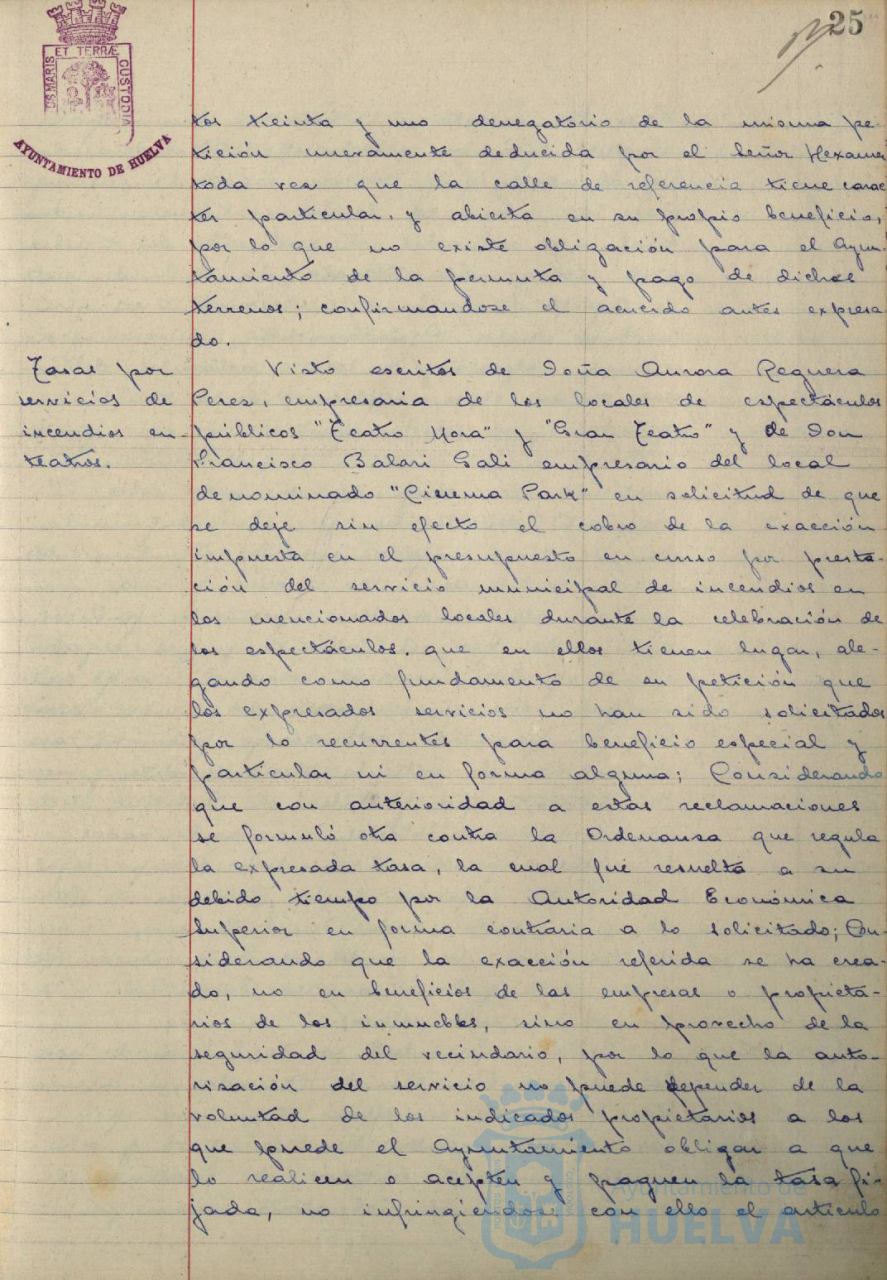 25
ET TERRÆ
US MARIS
CUSTODIA
AYUNTAMIENTO DE HUELVA
tos treinta y uno denegatorio de la misma pe-
tición nuevamente deducida por el Señor Hexamer
toda vez que la calle de referencia tiene carac
ter particular, y abierta en su propio beneficio,
por lo que no existe obligación para el Ayun-
tamiento de la permuta y pago de dichos
terrenos; confirmandose el acuerdo antes expresa
do.
Tasas por
servicios de
incendios en
teatros.
Visto escritos de Doña Aurora Reguera
Perez, empresaria de los locales de espectáculos
públicos "Teatro Mora" y "Gran Teatro" y de Don
Francisco Balari Gali empresario del local
denominado "Cinema Park" en solicitud de que
se deje sin efecto el cobro de la exacción
impuesta en el presupuesto en curso por presta-
ción del servicio municipal de incendios en
los mencionados locales durante la celebración de
los espectáculos. que en ellos tienen lugar, ale-
gando como fundamento de su petición que
los expresados servicios no han sido solicitados
por lo recurrentes para beneficio especial y
particular ni en forma alguna; Considerando
que con anterioridad a estas reclamaciones
se formuló otra contra la Ordenansa que regula
la expresada tasa, la cual fué resuelta a su
debido tiempo por la Autoridad Económica
Superior en forma contraria a lo solicitado; Con-
siderando que la exacción referida se ha crea-
do, no en beneficios de las empresas o propieta-
rios de los inmuebles, sino en provecho de la
seguridad del vecindario, por lo que la auto-
risación del servicio no puede depender de la
voluntad de los indicados propietarios a los
que puede el Ayuntamiento obligar a que
lo realicen o acepten y paguen la tasa fi-
jada, no infringiendose con ello el articulo
Ayuntamiento de
HUELVA